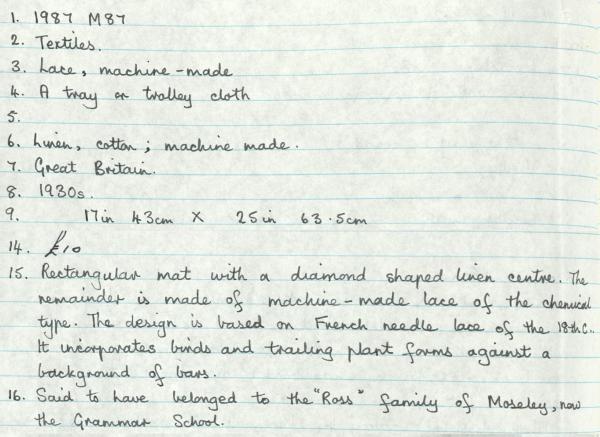 1. 1987 M87
2. Textiles.
3. Lace, machine-made
4. A tray or trolley cloth
5.
6. Linen, cotton; machine made.
7. Great Britain.
8. 1930s.
9. 17in 43cm X 25in 63.5cm
14. £10
15. Rectangular mat with a diamond shaped linen centre. The
remainder is made of machine-made lace of the chemical
type. The design is based on French needle lace of the 18thC..
It incorporates birds and trailing plant forms against a
background of bars.
16. Said to have belonged to the "Ross" family of Moseley, now
the Grammar School.